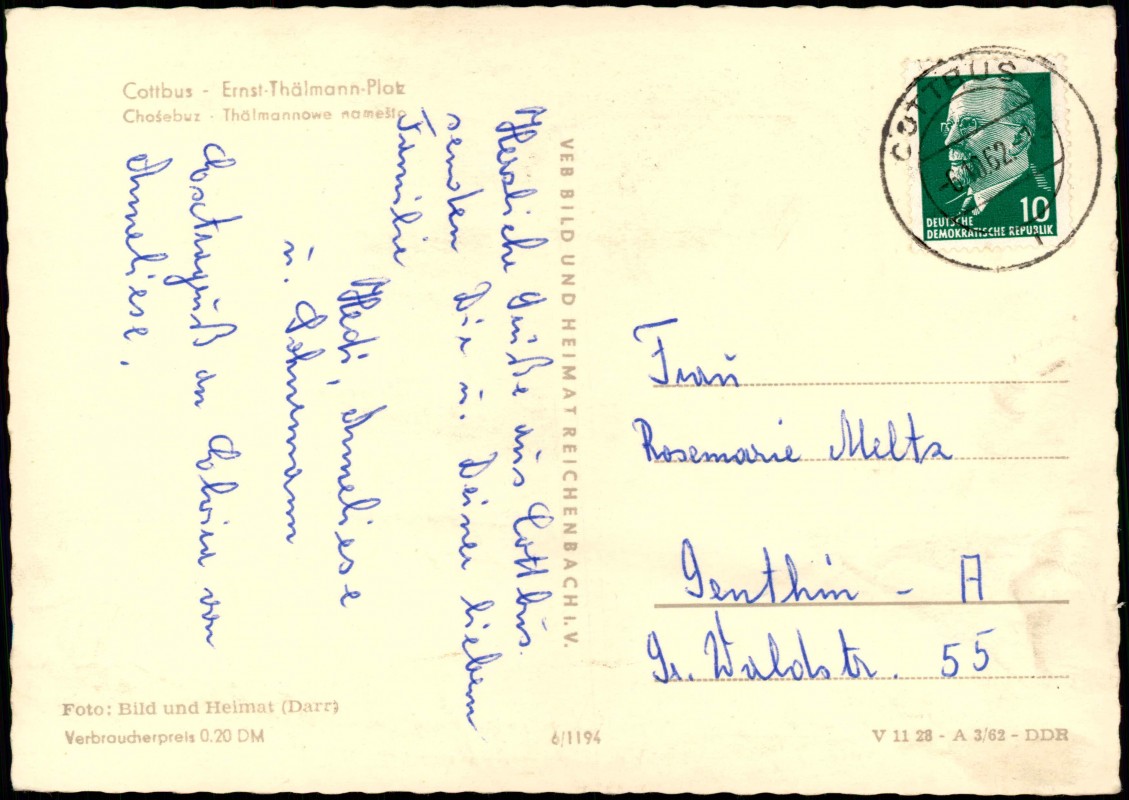 Cottbus - Ernst-Thälmann-Platz
Chośebuz - Thälmannowe naměsto
Herzliche Grüße aus Cottbus.
senden Dir u. Deiner lieben
Familie
Hedi, Anneliese
u. Lehmann
Extragruß an Edwin von
Anneliese.
VEB BILD UND HEIMAT REICHENBACH i. V.
COTTBUS
-6.10.62.-
10
DEUTSCHE
DEMOKRATISCHE REPUBLIK
Frau
Rosemarie Meltz
Genthin - A
Gr. Waldstr. 55
Foto: Bild und Heimat (Darr)
Verbraucherpreis 0.20 DM
6/1194
V 11 28 - A 3/62 - DDR